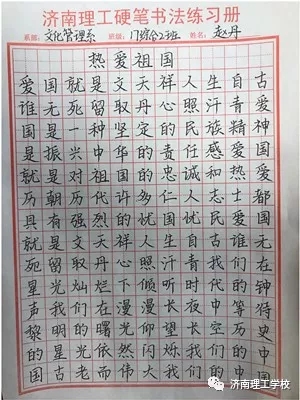 济南理工硬笔书法练习册
系部: 文化管理系 班级: 门综合2班 姓名: 赵丹
热爱祖国
爱国就是文天祥人生自古
谁无死留取丹心照汗青爱
国是一种坚定的民族精神
是振兴中华的责任感爱国
就是对祖国的忠诚和热爱
历朝历代许多仁人志士都
具有强烈的忧国忧民爱国
就是文天祥人生自古谁无
死留取丹心照汗青我们在
星光灿烂下倾听时代的钟
声我们在漫漫长夜中等得
黎明的曙光仰望长空历史
的星光依然闪烁我们的中
国古老而伟大我们的中国
济南理工学校